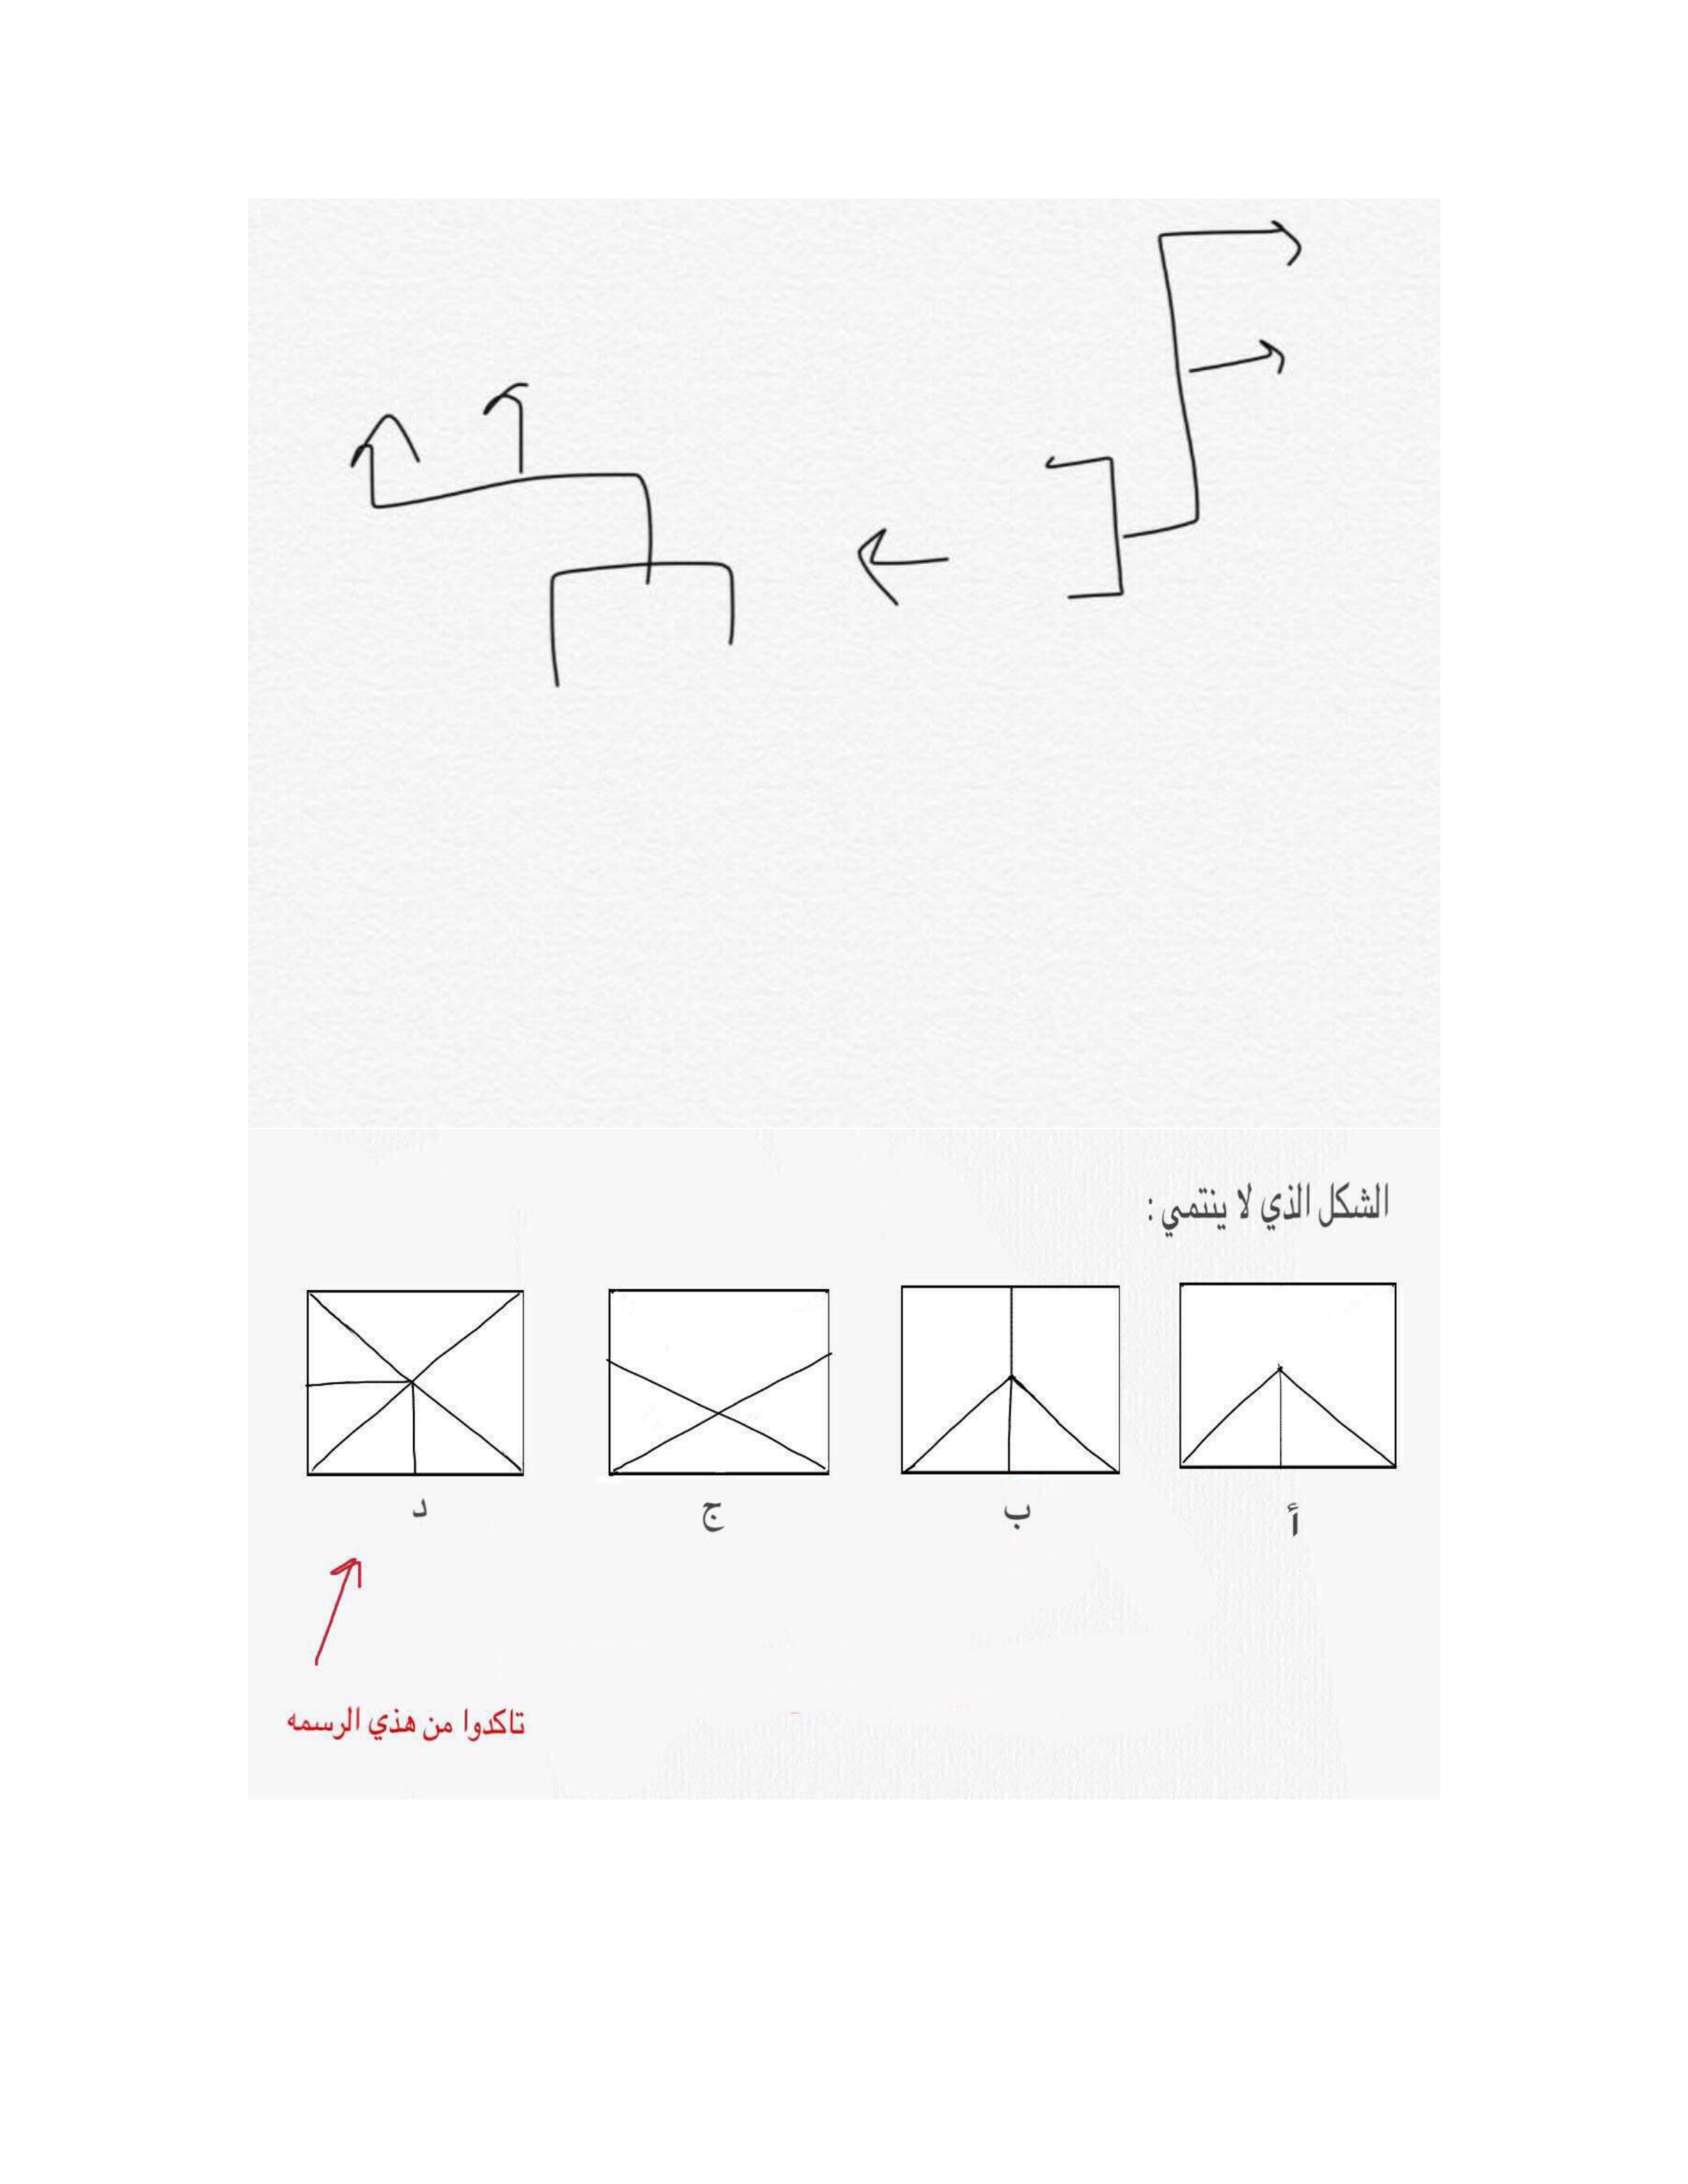 الشكل الذي لا ينتمي :
أ ب ج د
تاكدوا من هذي الرسمه